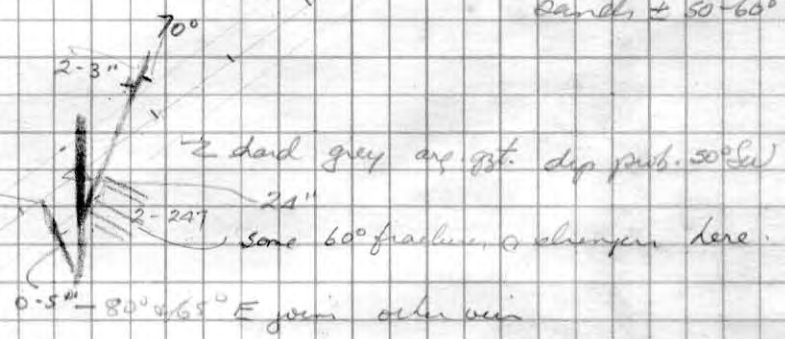 70°
bands ± 50-60°
2-3"
hard grey arg. qzt. dip prob. 50° SW
24"
2-24"
some 60° fractures & stringers here.
0-5" - 80° & 65° E joins other vein